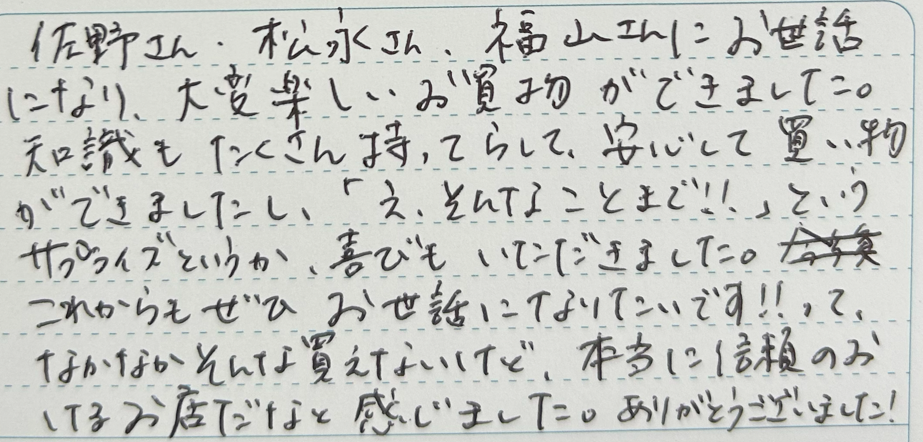 佐野さん、松永さん、福山さんにお世話
になり、大変楽しいお買物ができました。
知識もたくさん持ってらして、安心して買い物
ができましたし、「え、そんなことまで!!」という
サプライズというか、喜びもいただきました。
これからもぜひお世話になりたいです!!って、
なかなかそんな買えないけど、本当に信頼のお
けるお店だなと感じました。ありがとうございました!